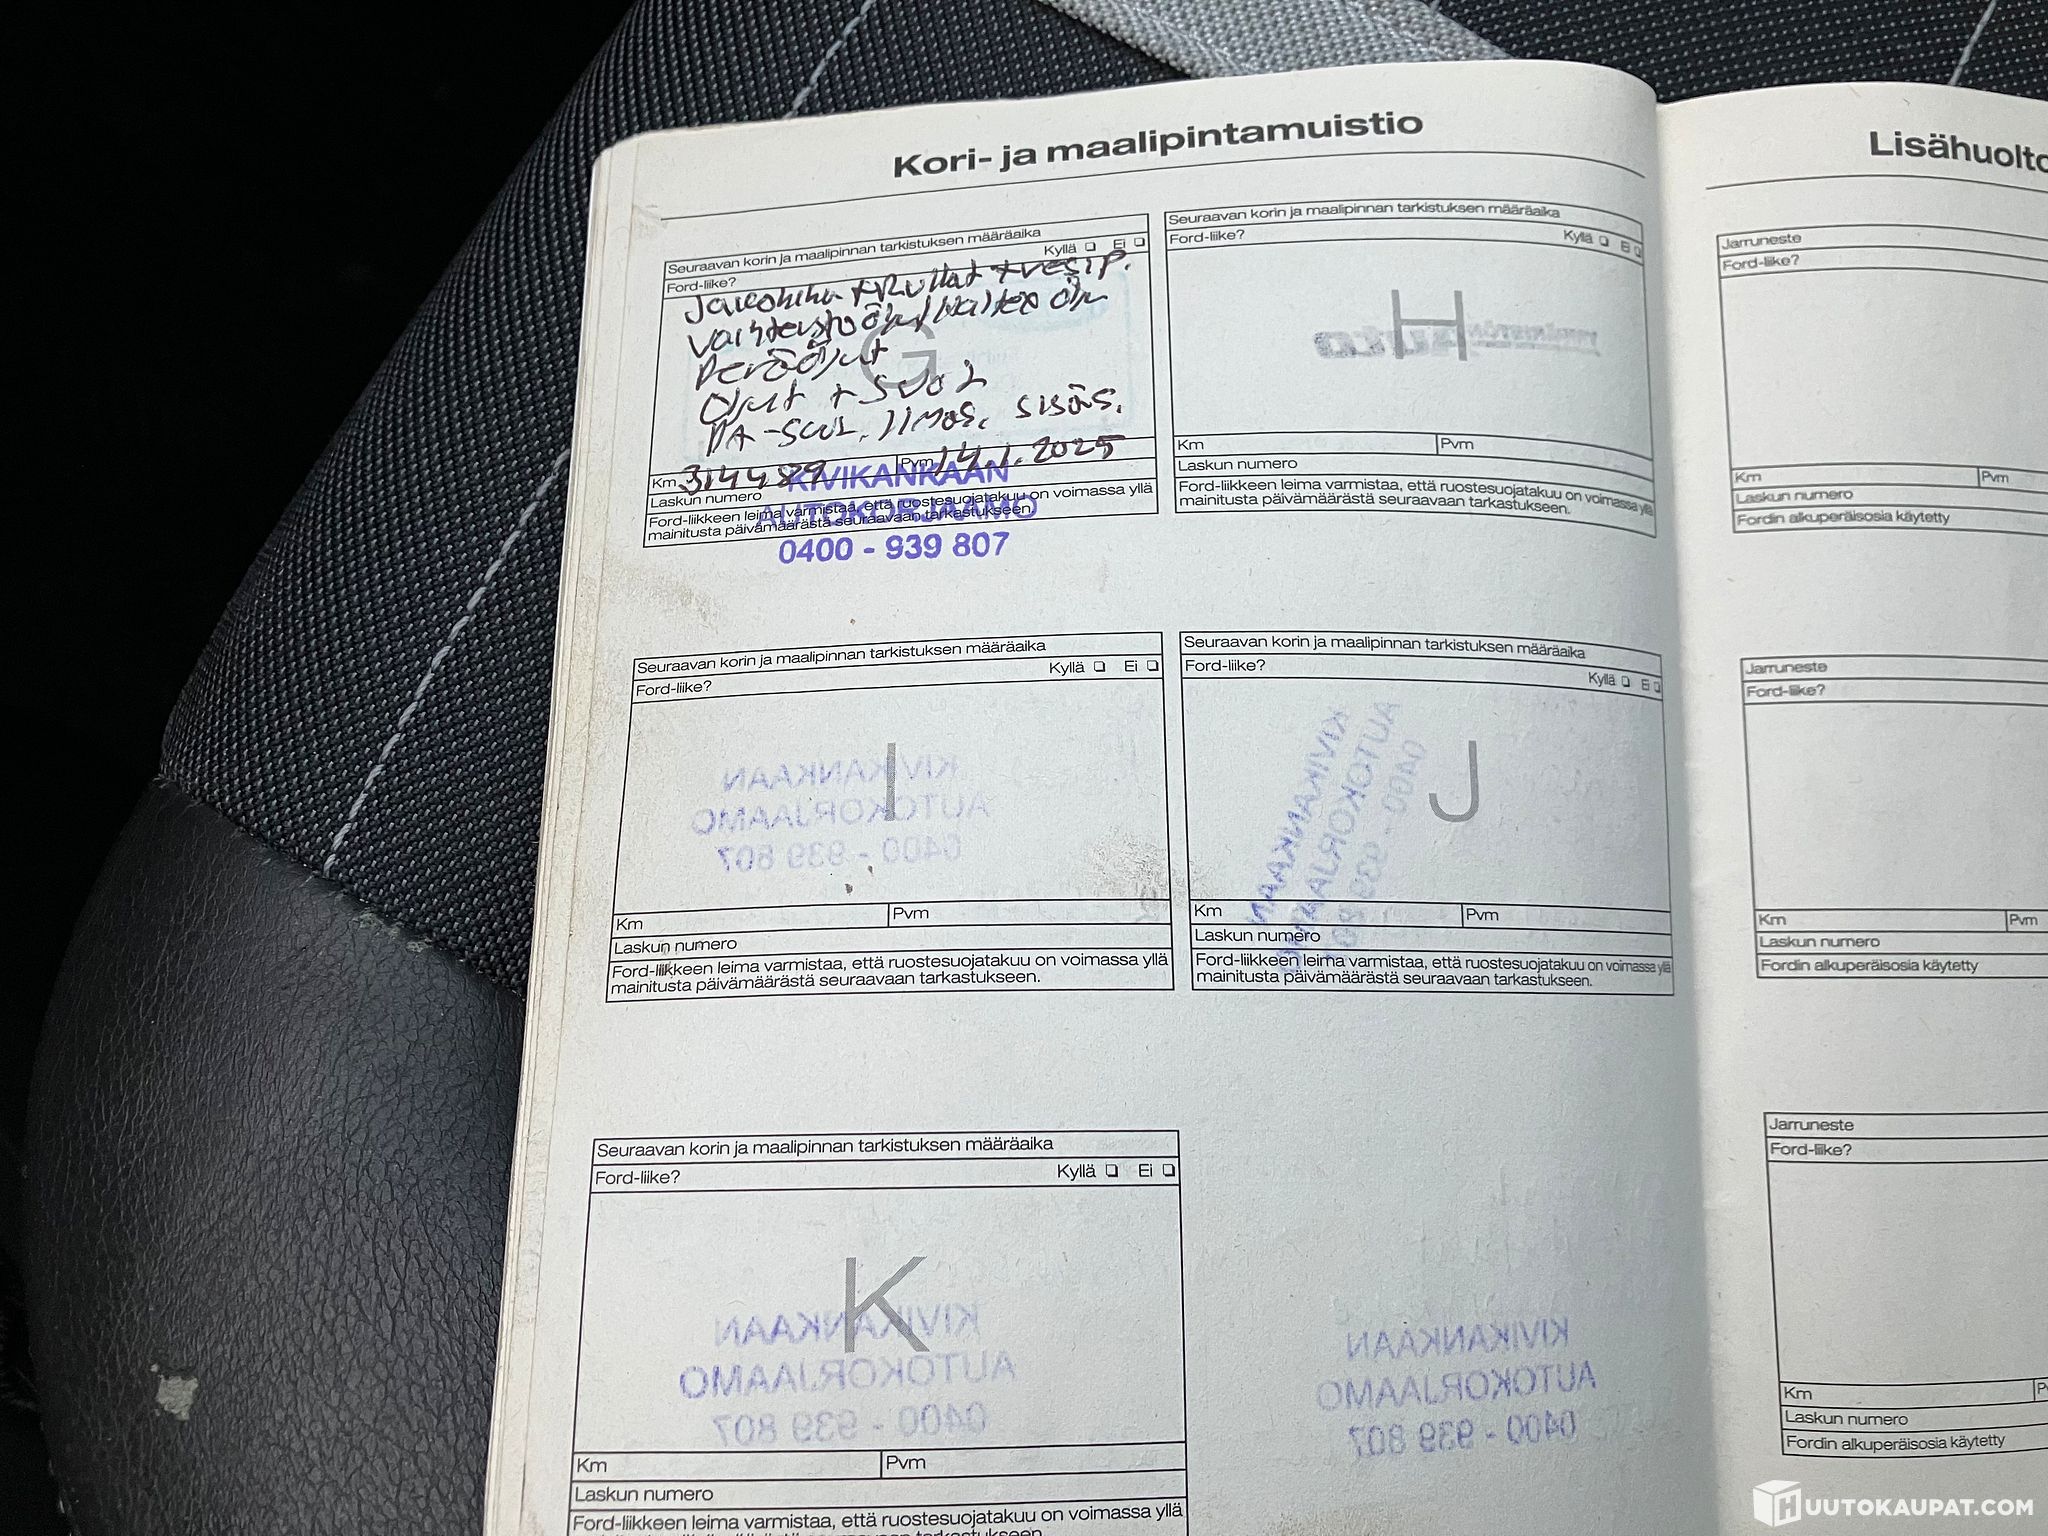 Kori- ja maalipintamuistio
Seuraavan korin ja maalipinnan tarkistuksen määräaika
Ford-liike? Kyllä Ei
Jakohihna + Rullat + vesip.
vaihteistoöljy / Haltex öljy
Peräöljyt
Öljyt + suo2
PA-suo2. ilmas. sisäs.
G
Km 314489 Pvm 14.1.2025
Laskun numero
Ford-liikkeen leima varmistaa, että ruostesuojatakuu on voimassa yllä
mainitusta päivämäärästä seuraavaan tarkastukseen.
KIVIKANKAAN
AUTOKORJAAMO
0400 - 939 807
Seuraavan korin ja maalipinnan tarkistuksen määräaika
Ford-liike? Kyllä Ei
H
Km Pvm
Laskun numero
Ford-liikkeen leima varmistaa, että ruostesuojatakuu on voimassa yllä
mainitusta päivämäärästä seuraavaan tarkastukseen.
Seuraavan korin ja maalipinnan tarkistuksen määräaika
Kyllä Ei
Ford-liike?
I
KIVIKANKAAN
AUTOKORJAAMO
0400 - 939 807
Km Pvm
Laskun numero
Ford-liikkeen leima varmistaa, että ruostesuojatakuu on voimassa yllä
mainitusta päivämäärästä seuraavaan tarkastukseen.
Seuraavan korin ja maalipinnan tarkistuksen määräaika
Ford-liike? Kyllä Ei
J
KIVIKANKAAN
AUTOKORJAAMO
0400 - 939 807
Km Pvm
Laskun numero
Ford-liikkeen leima varmistaa, että ruostesuojatakuu on voimassa yllä
mainitusta päivämäärästä seuraavaan tarkastukseen.
Seuraavan korin ja maalipinnan tarkistuksen määräaika
Ford-liike? Kyllä Ei
K
KIVIKANKAAN
AUTOKORJAAMO
0400 - 939 807
Km Pvm
Laskun numero
Ford-liikkeen leima varmistaa, että ruostesuojatakuu on voimassa yllä
KIVIKANKAAN
AUTOKORJAAMO
0400 - 939 807
Lisähuolto
Jarruneste
Ford-liike?
Km Pvm
Laskun numero
Fordin alkuperäisosia käytetty
Jarruneste
Ford-liike?
Km Pvm
Laskun numero
Fordin alkuperäisosia käytetty
Jarruneste
Ford-liike?
Km
Laskun numero
Fordin alkuperäisosia käytetty
HUUTOKAUPAT.COM